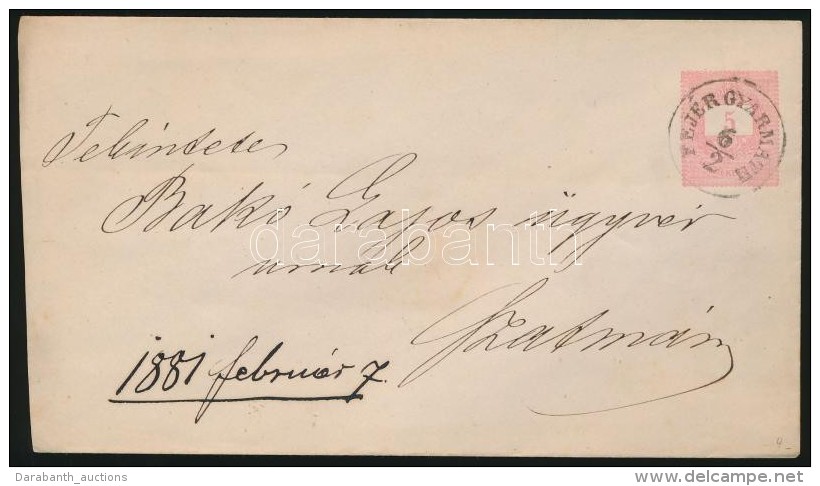 FEJÉR GYARMATH
5
6/2
Tekintetes
Bakó Lajos ügyvéd
urnak
Szatmár
1881 február 7.
darabanth
4-
Darabanth_auctions
www.delcampe.net